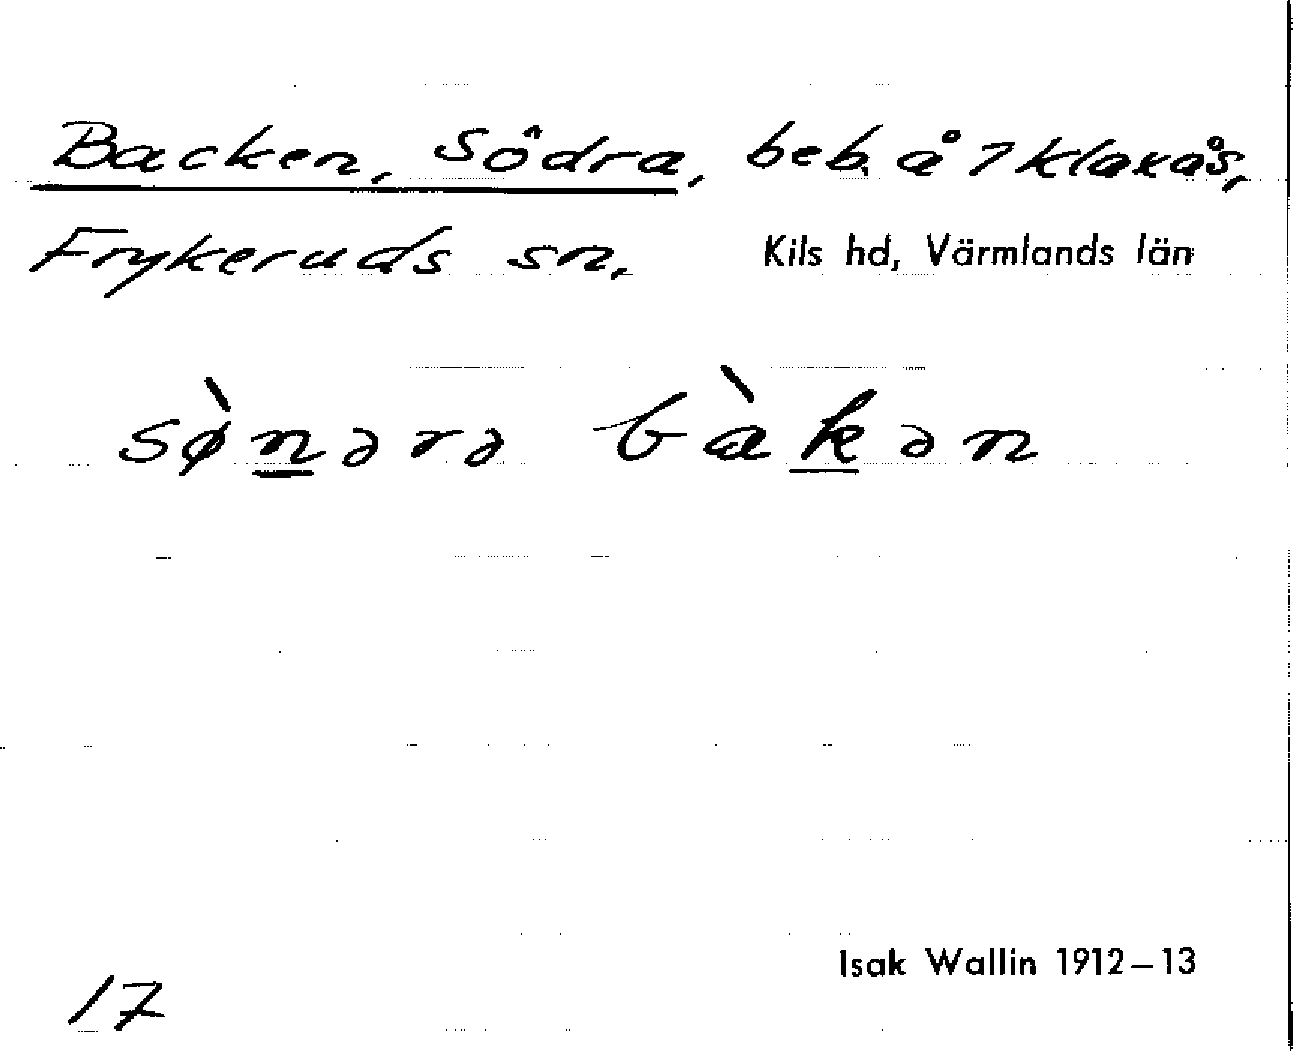 Backen, Södra, beb. å 7 Klaxås,
Frykeruds sn, Kils hd, Värmlands län
sø̀nərə bàkən
Isak Wallin 1912–13
17